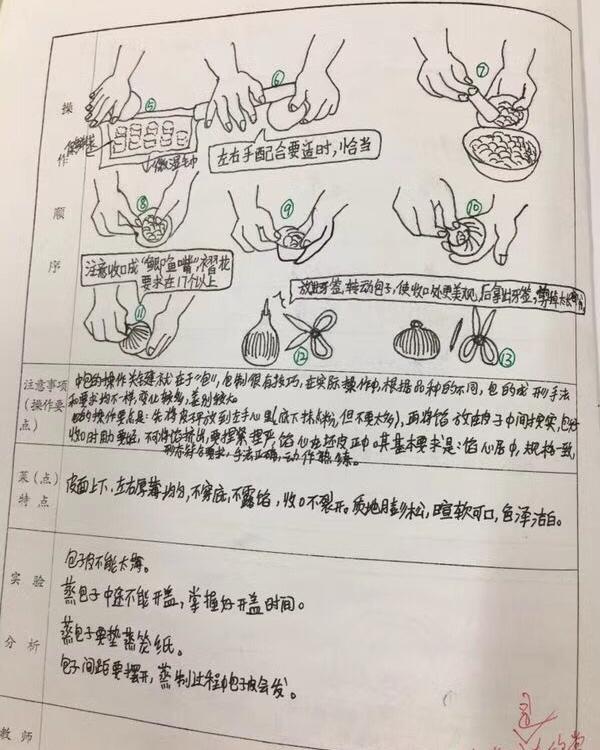 操作顺序
⑤
⑥
⑦
保鲜袋
微湿毛巾
左右手配合要适时,恰当
⑧
⑨
⑩
注意收口成“鲫鱼嘴”,褶花
要求在17个以上
⑪
放进牙签,转动包子,使收口处更美观,后拿出牙签,剪掉
⑫
⑬
注意事项
(操作要
点)
中包的操作关键就在于“包”,包制很有技巧,在实际操作中,根据品种的不同,包的成形手法
和要求均不一样,变化较多,差别较大
的操作要点是:先将皮子平放到左手心里(底下抹点粉,但不要太多),再将馅放在皮子中间按实,包好
收口时要,不可将馅挤出,要捏紧捏严馅心在坯皮正中。其基本要求是:馅心居中,规格一致,
形态符合要求,手法正确,动作熟练。
菜(点)
特点
皮面上下、左右厚薄均匀,不穿底,不露馅,收口不裂开。质地膨松,暄软可口,色泽洁白。
实验
分析
包子皮不能太薄。
蒸包子中途不能开盖,掌握好开盖时间。
蒸包子要垫蒸笼纸。
包子间距要摆开,蒸制过程中包子皮会发。
教师